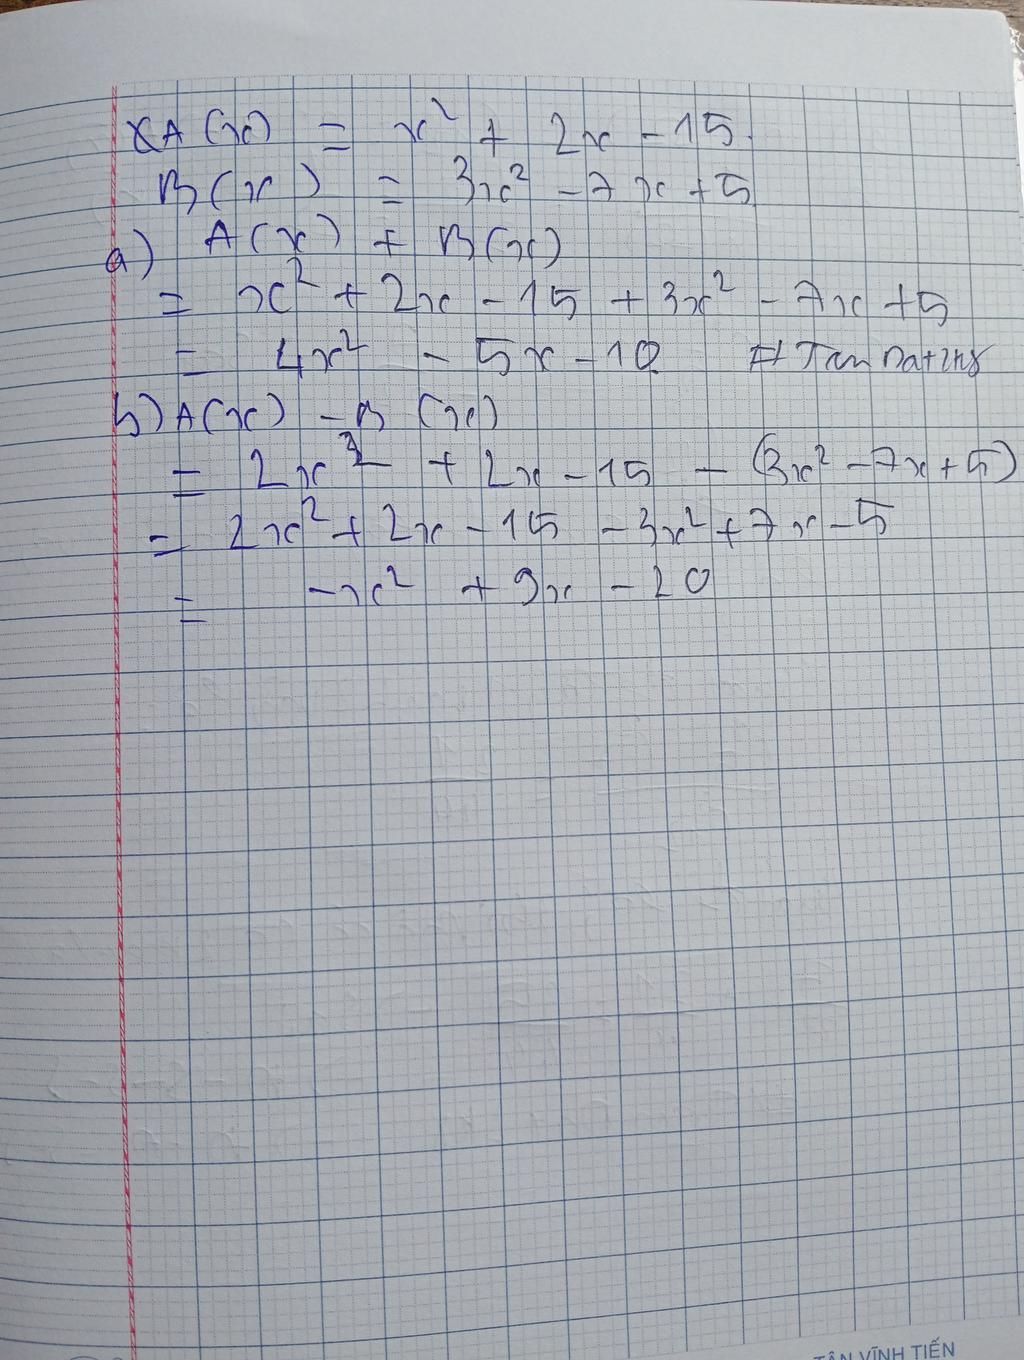 A(x) = x² + 2x - 15
B(x) = 3x² - 7x + 5
a) A(x) + B(x)
= x² + 2x - 15 + 3x² - 7x + 5
= 4x² - 5x - 10
b) A(x) - B(x)
= 2x² + 2x - 15 - (3x² - 7x + 5)
= 2x² + 2x - 15 - 3x² + 7x - 5
= -x² + 9x - 20
TÂN VĨNH TIẾN